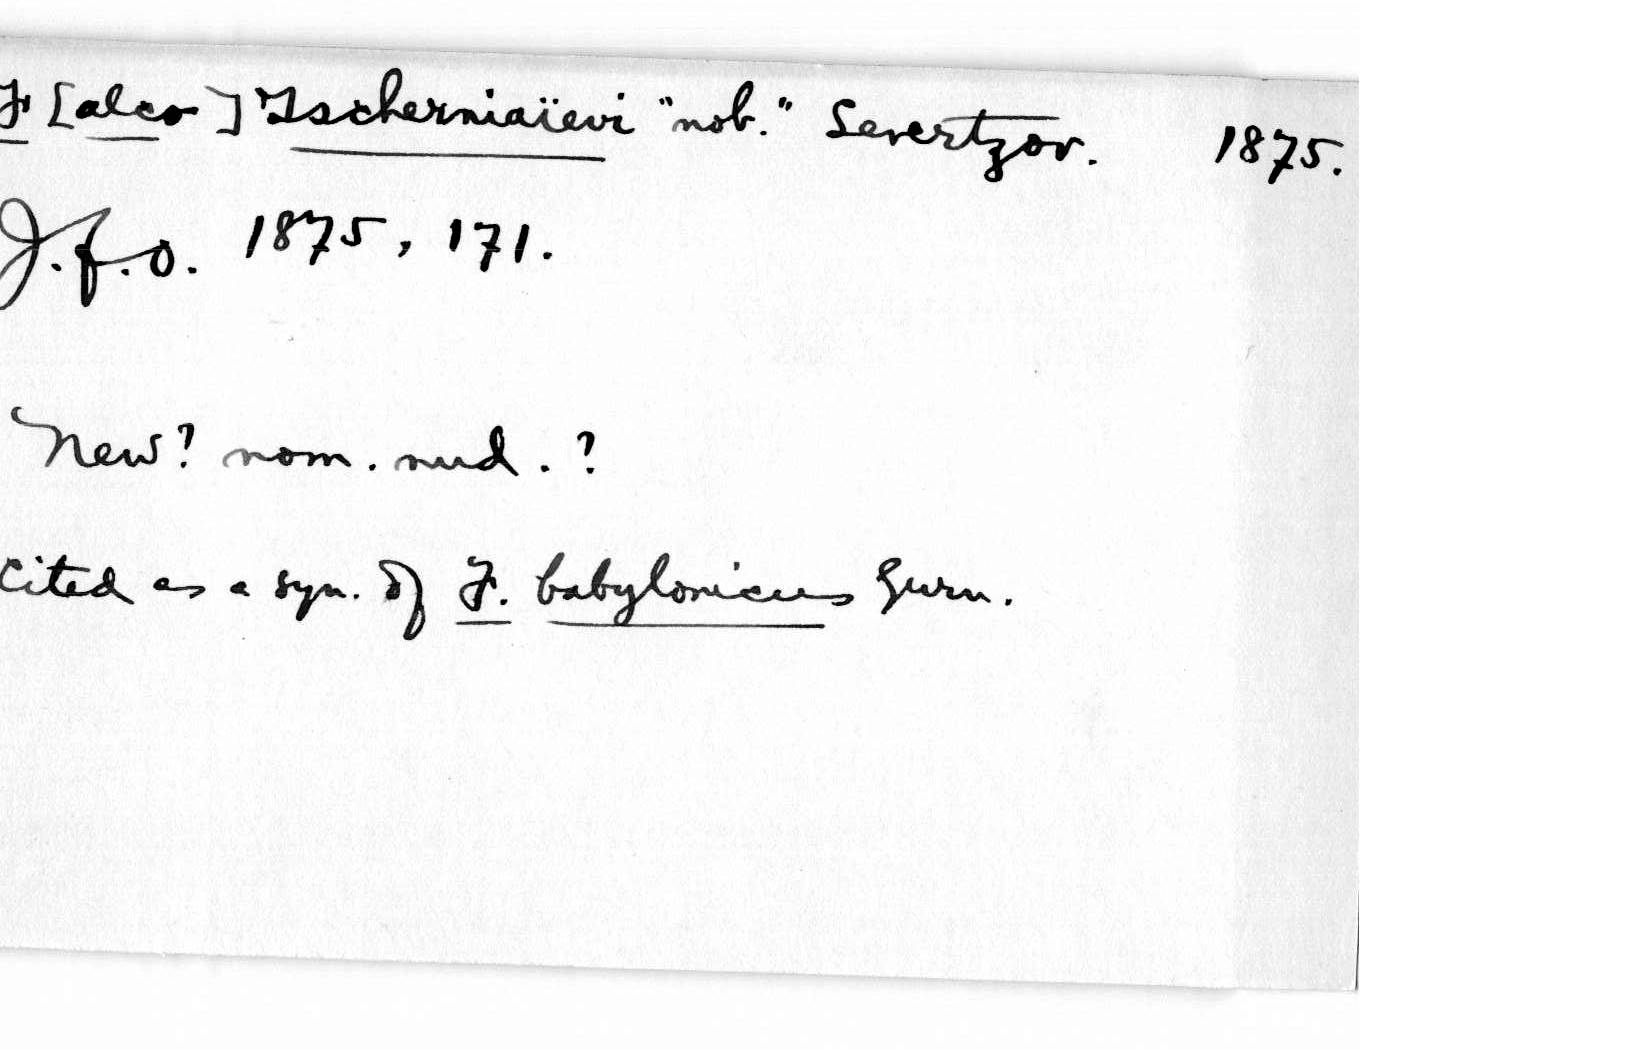 F[alco] Tscherniaïevi "nob." Severtzov. 1875.
J.f.O. 1875, 171.
New? nom. nud.?
Cited as a syn. of F. babylonicus Gurn.